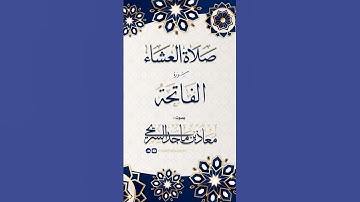 صلاة العشاء
سورة
الفاتحة
بصوت:
معاذ بن ماجد السريحي